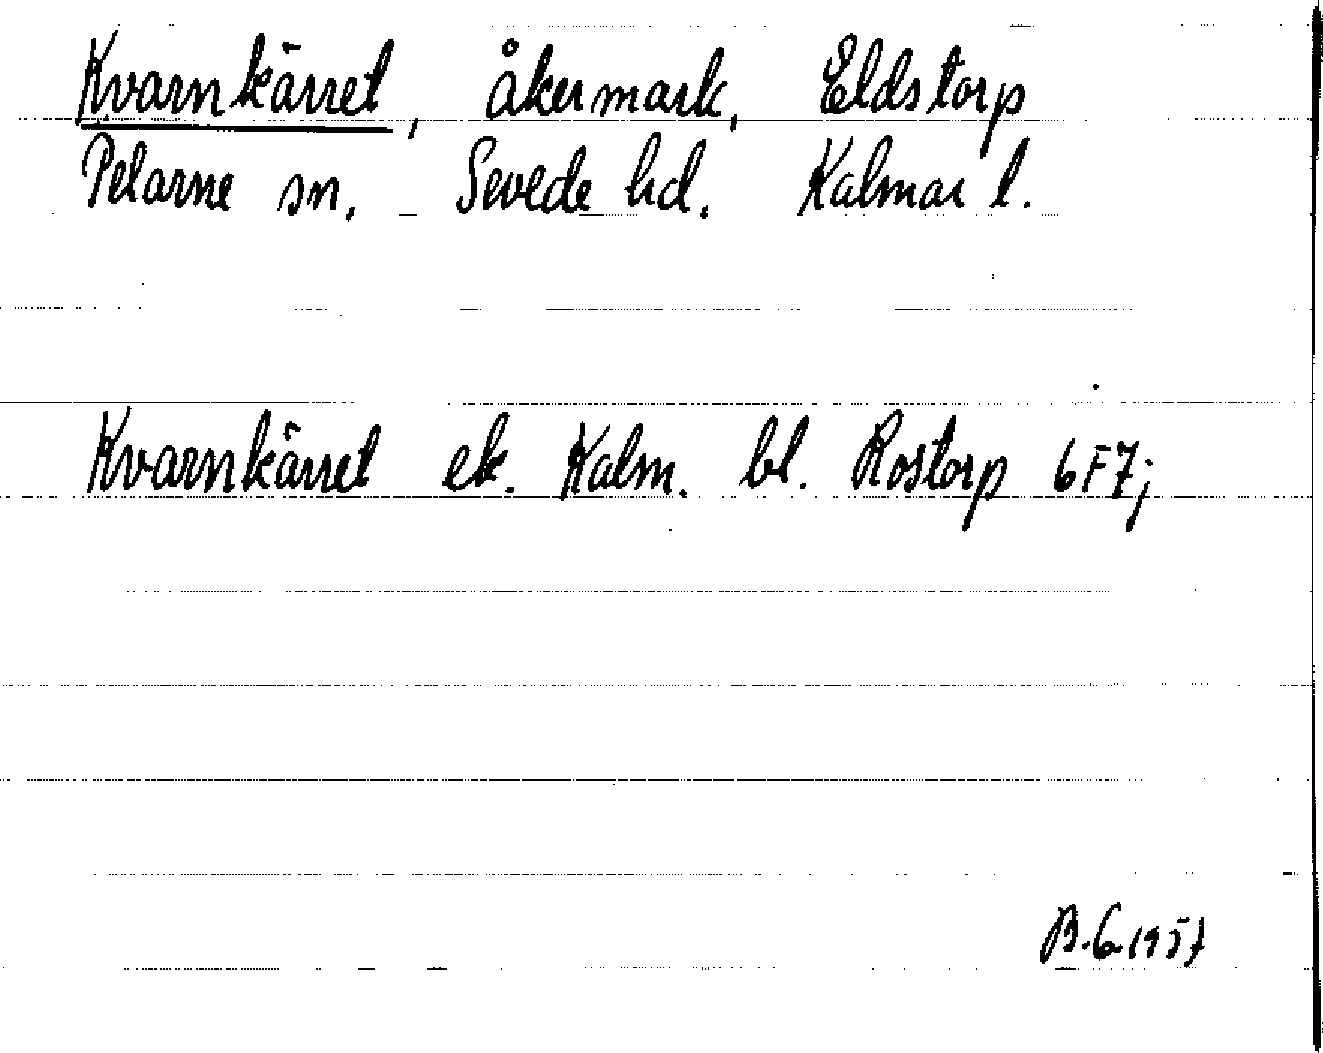 Kvarnkärret, åkermark, Eldstorp
Pelarne sn. Sevede hd. Kalmar l.
Kvarnkärret ek. Kalm. bl. Rostorp 6F7j
B.G 1957